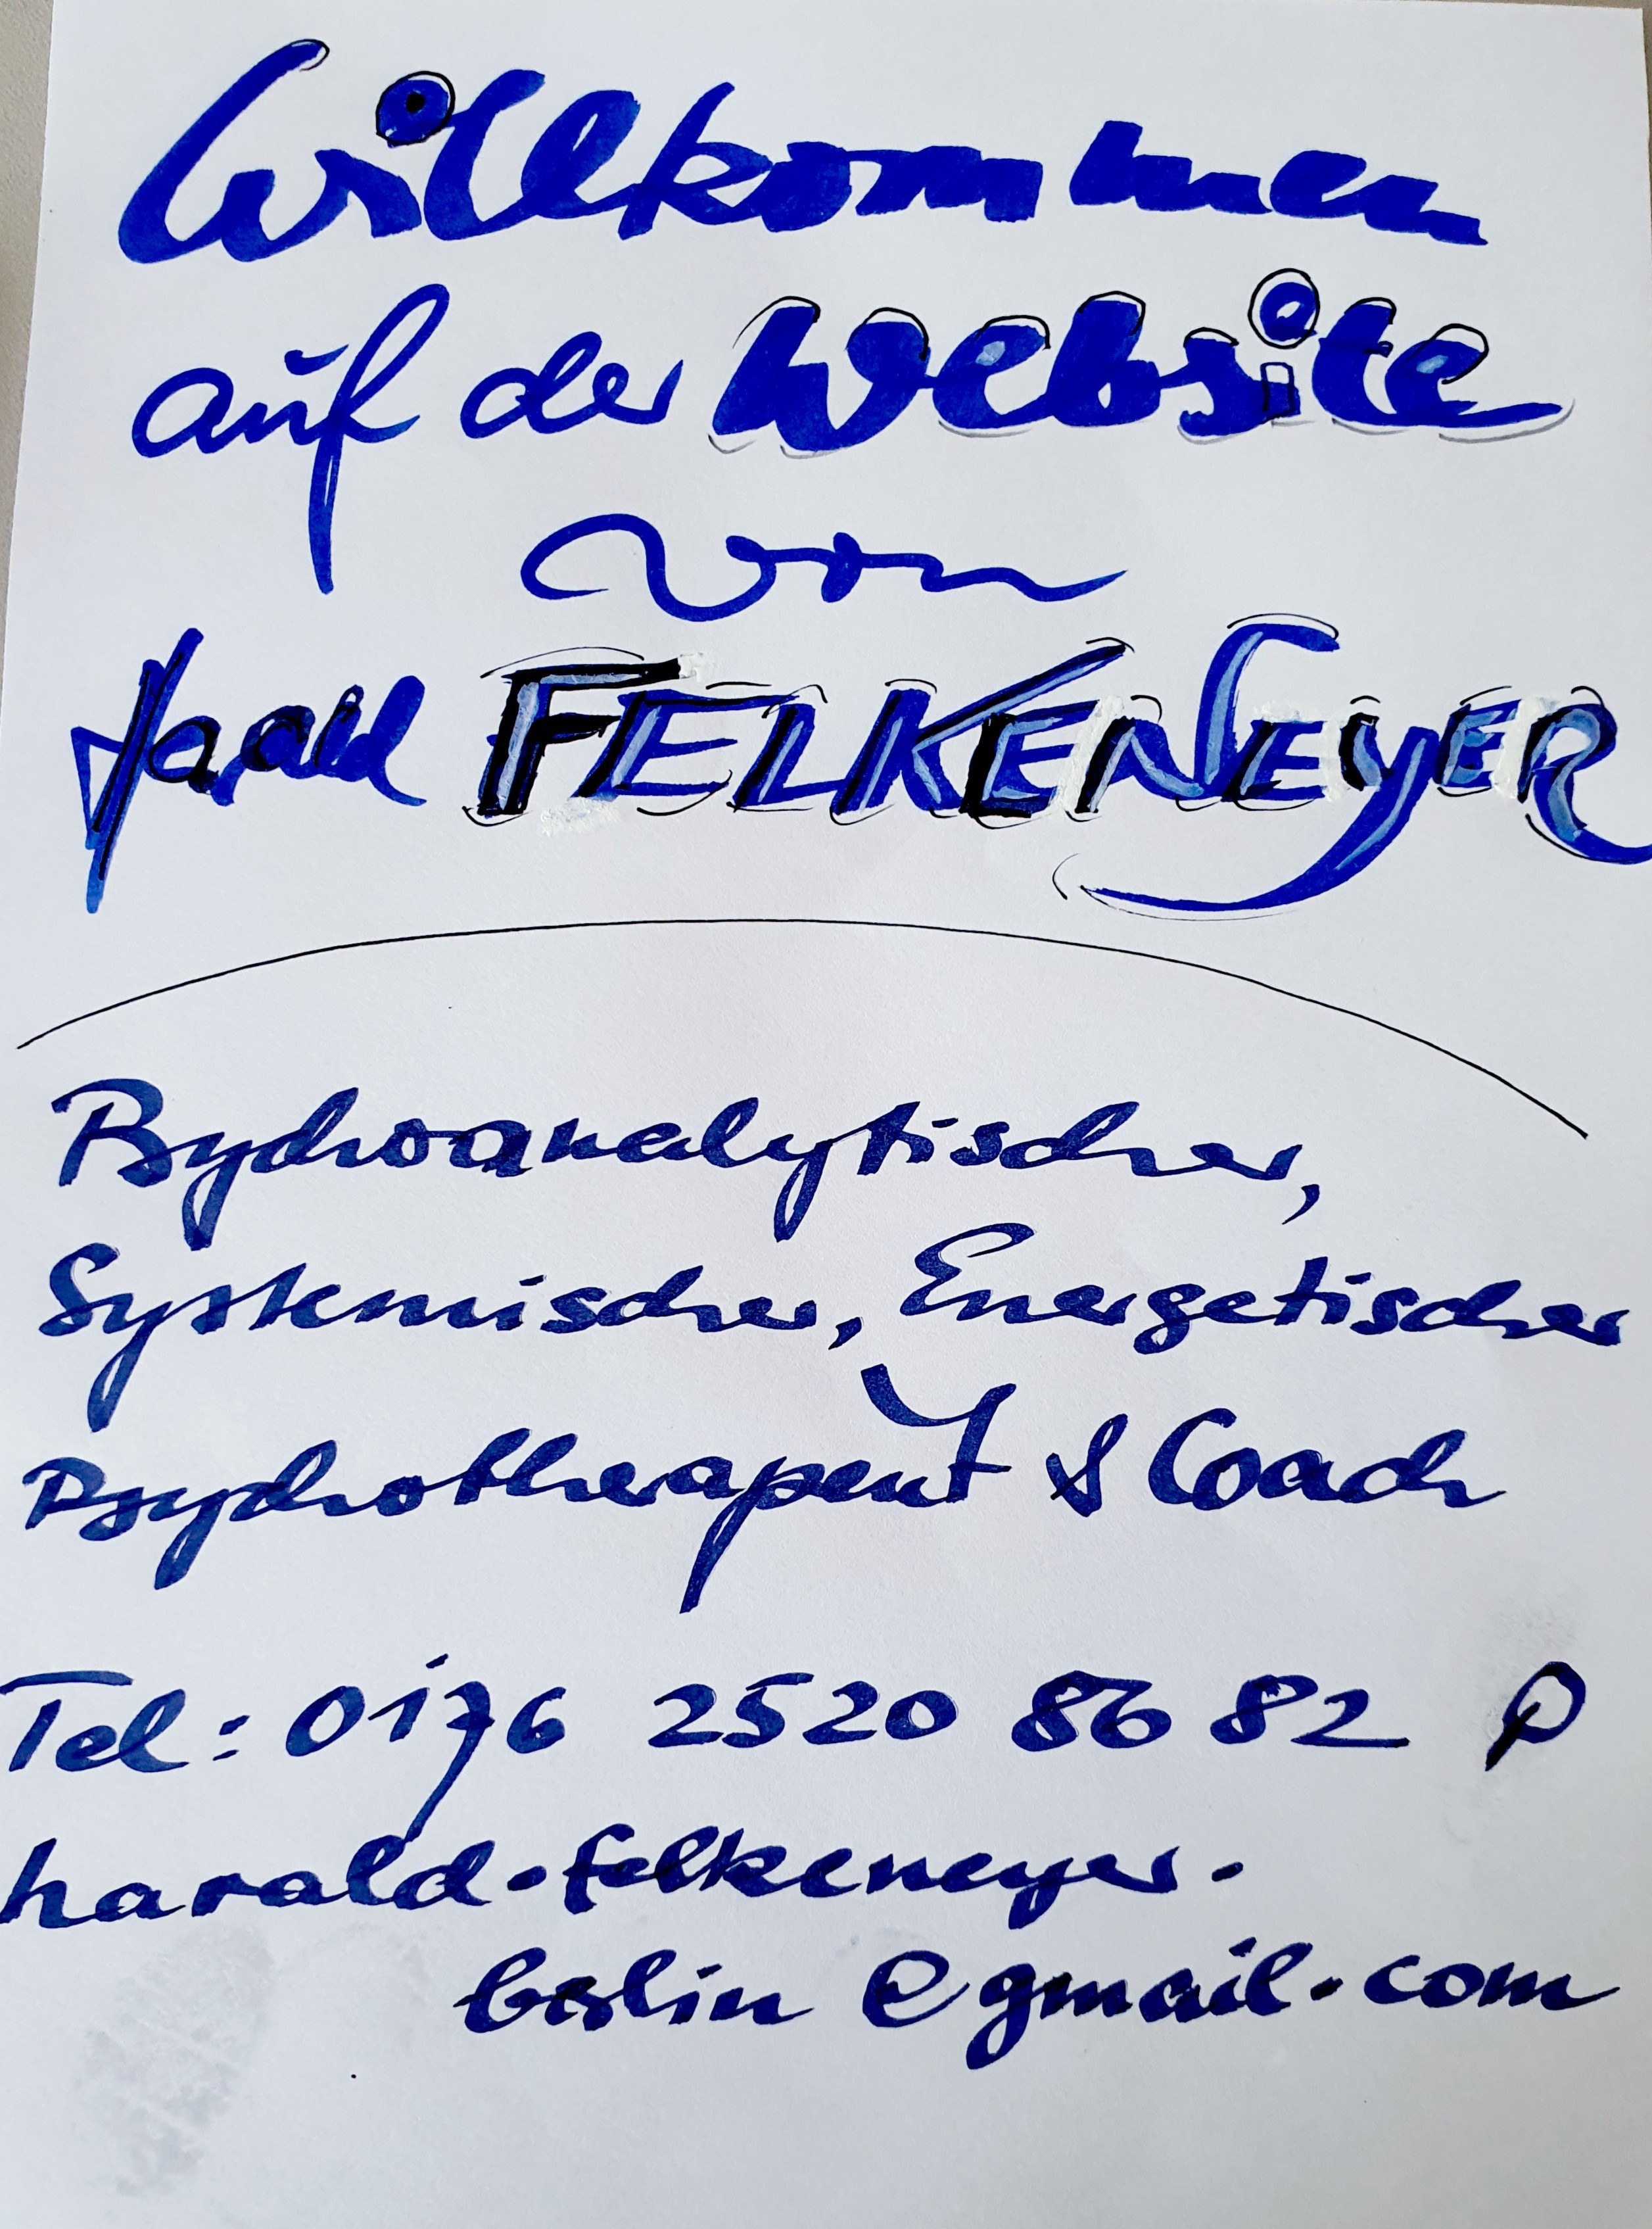 Willkommen
auf der Website
von
Harald FELKENEYER
Psychoanalytischer,
Systemischer, Energetischer
Psychotherapeut & Coach
Tel: 0176 2520 86 82
harald.felkeneyer.
berlin@gmail.com